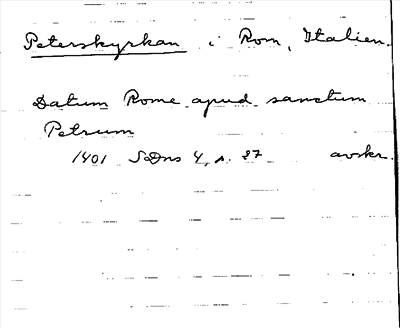 Peterskyrkan i Rom, Italien.
Datum Rome apud sanctum
Petrum
1401 SDns 4, s. 27 avskr.